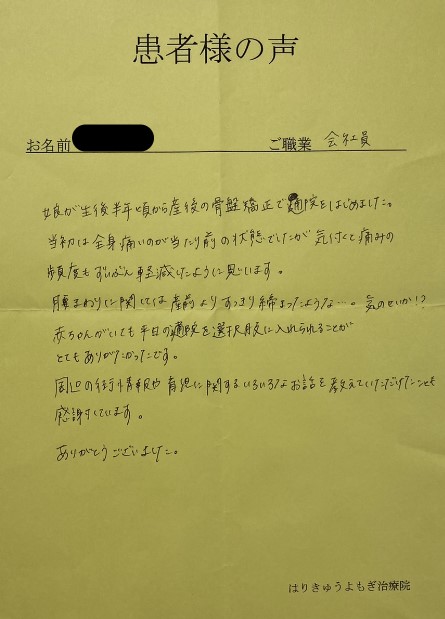 患者様の声
お名前 ご職業 会社員
娘が生後半年頃から産後の骨盤矯正で通院をはじめました。
当初は全身痛いのが当たり前の状態でしたが 気付くと痛みの
頻度もずいぶん軽減したように感じいます。
腰まわりに関しては産前よりすっきり締まったような…。気のせいか!?
赤ちゃんがいても平日の通院を選択肢に入れられることが
とてもありがたかったです。
周辺の街情報や育児に関するいろいろなお話を教えていただけたことも
感謝しています。
ありがとうございました。
はりきゅうよもぎ治療院